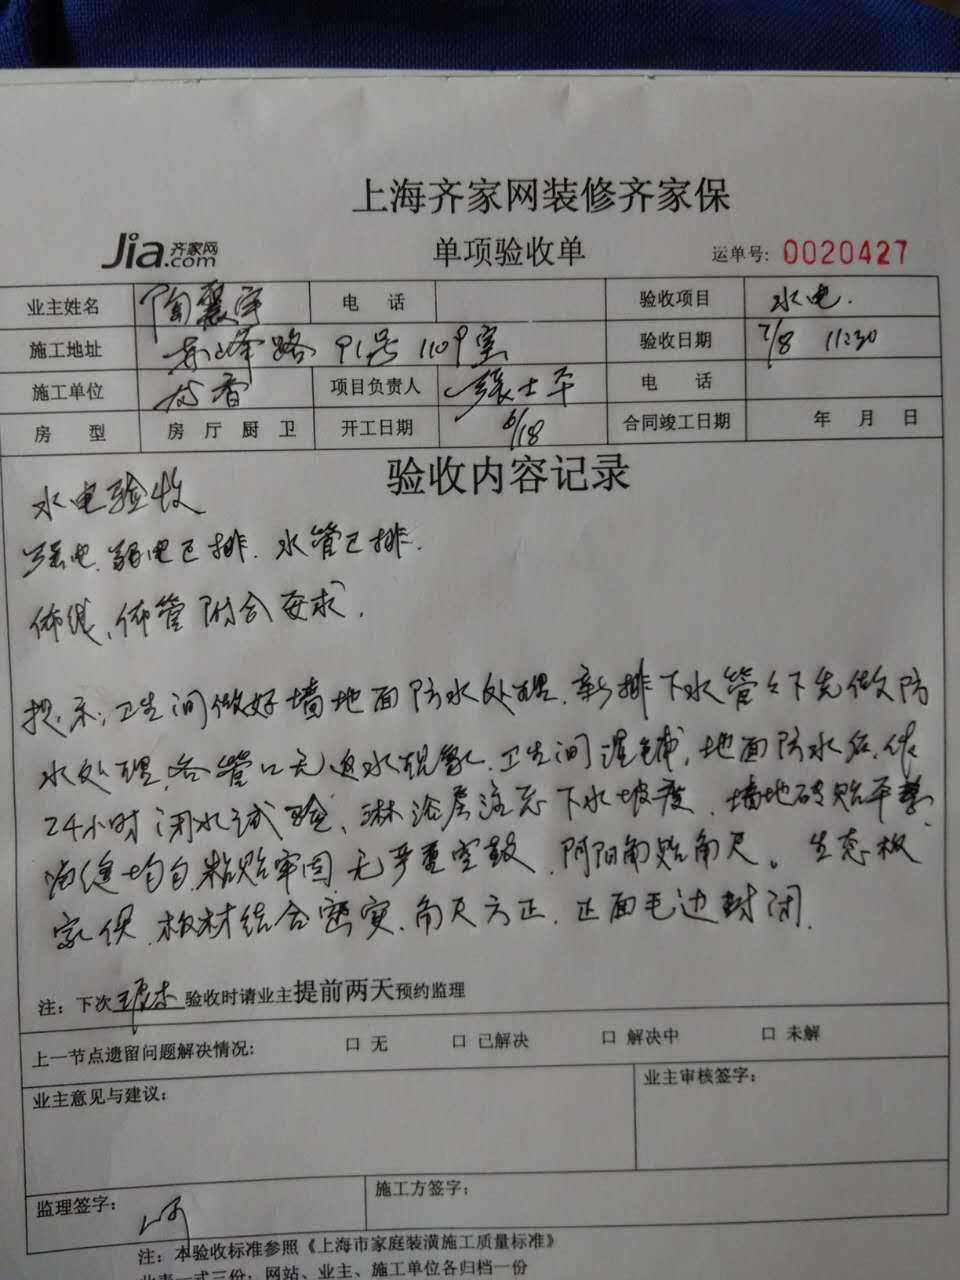 上海齐家网装修齐家保
Jia 齐家网 .com 单项验收单 运单号: 0020427
业主姓名 陶 宇 电 话 验收项目 水电.
施工地址 路 91号 1109室 验收日期 7/8 11:30
施工单位 香 项目负责人 张士平 电 话
房 型 房 厅 厨 卫 开工日期 6/18 合同竣工日期 年 月 日
验收内容记录
水电验收
强电、弱电已排. 水管已排.
佈线、佈管附合要求.
提示: 卫生间做好墙地面防水处理. 新排下水管之下先做防
水处理. 各管口无返水现象. 卫生间 , 地面防水后. 做
24小时闭水试验、淋浴房注意下水坡度. 墙地砖贴平整.
缝均匀. 粘贴牢固. 无严重空鼓. 阴阳角贴角尺。 生态板
家俱. 板材结合密实. 角尺方正. 正面毛边封闭.
注: 下次 验收时请业主提前两天预约监理
上一节点遗留问题解决情况: □ 无 □ 已解决 □ 解决中 □ 未解
业主意见与建议: 业主审核签字:
监理签字: 施工方签字:
注: 本验收标准参照《上海市家庭装潢施工质量标准》
此表一式三份: 网站、业主、施工单位各归档一份